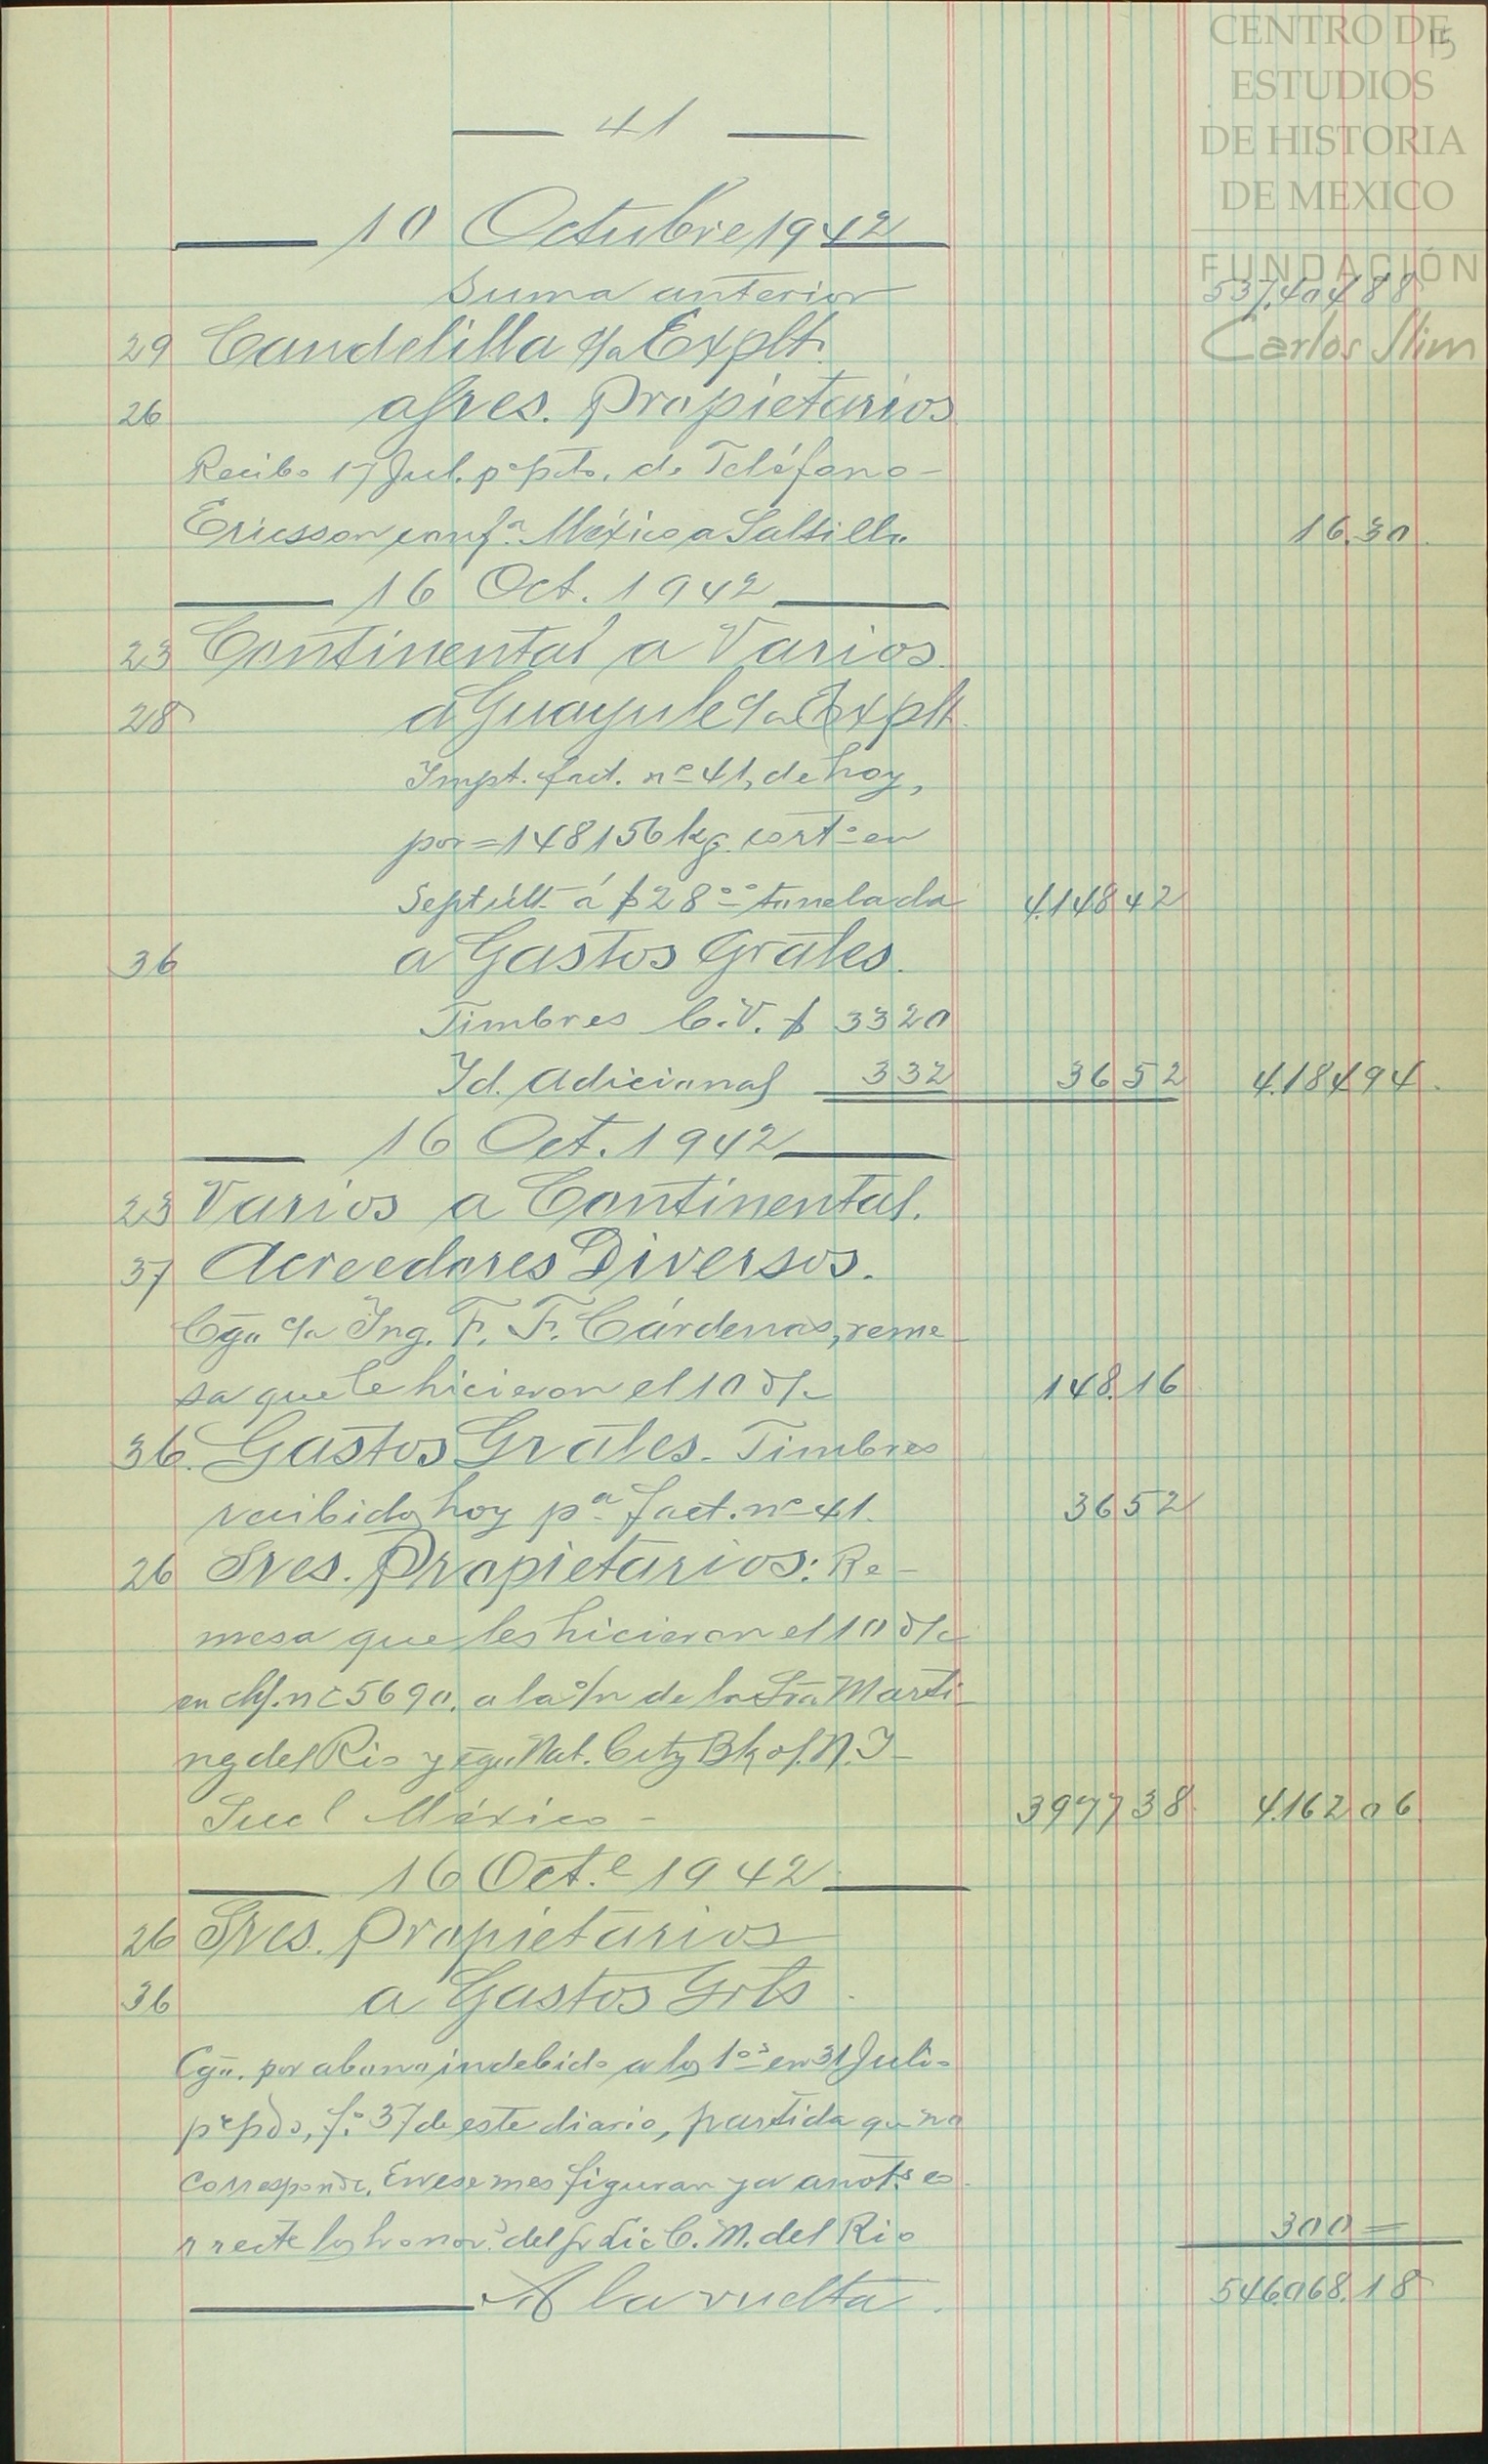 CENTRO DE
ESTUDIOS
DE HISTORIA
DE MEXICO
FUNDACIÓN
Carlos Slim
15
41
10 Octubre 1942
Suma anterior 537,404 88
29 Candelilla c/a Explt.
26 a Sres. Propietarios
Recibo 17 Jul. pº pdo. de Teléfono-
Ericsson confª México a Saltillo. 16.30
16 Oct. 1942
23 Continental a Varios.
28 a Guayule c/a Explt.
Impt. fact. nº 41, de hoy,
por = 148156 kg. cortº en
Sept últ. á $28.ºº tonelada 4,148 42
36 a Gastos Grales.
Timbres C.V. $ 33 20
Id. Adicional 3 32 36 52 4,184 94
16 Oct. 1942
23 Varios a Continental.
37 Acreedores Diversos.
Cgo. c/a Ing. F. F. Cárdenas, reme-
sa que le hicieron el 10 d/c 148.16
36. Gastos Grales. Timbres
recibidos hoy pª fact. nº 41. 36 52
26 Sres. Propietarios: Re-
mesa que les hicieron el 10 d/c
en ch/. nº 5690. a la o/n de la Sra Marti-
nz del Rio y cgo Nat. City Bk of. N.Y-
Sucl México- 3977 38 4,162 06
16 Oct.e 1942
26 Sres. Propietarios
36 a Gastos Grls.
Cgo. por abono indebido a los 1ºs en 31 Julio
pº pdo, fº 37 de este diario, partida que no
corresponde. En ese mes figuran ya anots. co-
rrecte los honor.s del Sr Lic C. M. del Rio 300 =
A la vuelta. 546,068.18